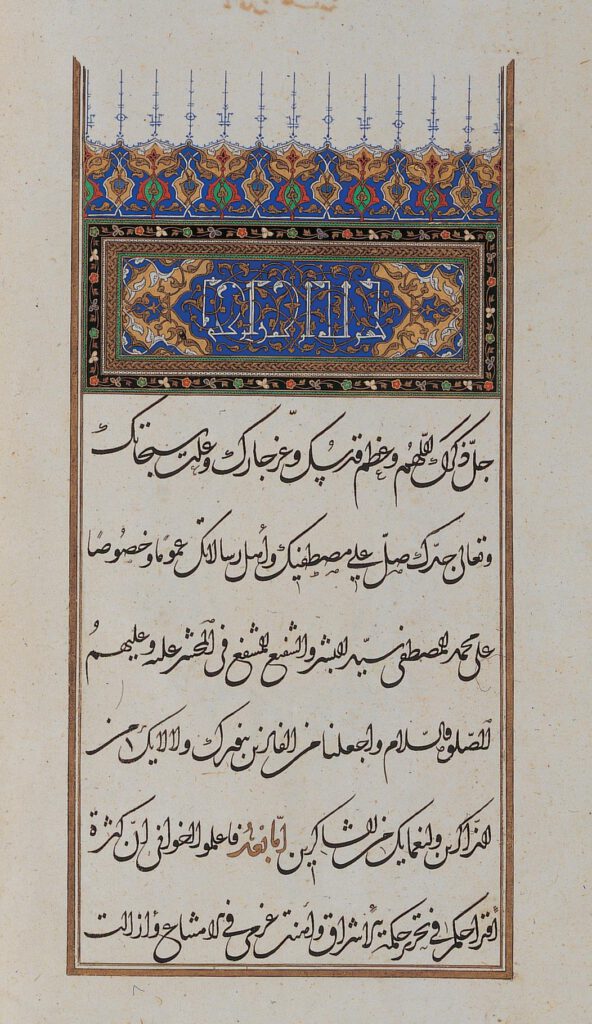 جلّ ذكرك اللّهم وعظم قدسك وعزّ جارك وعلت سبحاتك
وتعالى جدّك صلّ على مصطفيك وأهل رسالاتك عموما وخصوصًا
على محمد المصطفى سيّد البشر والشفيع المشفع في المحشر عليه وعليهمُ
الصّلوة والسّلام واجعلنا من الفائزين بنورك ولآلائك من
الذّاكرين ولنعمائك من الشاكرين امّا بعدُ فاعلموا اخوانى انّ كثرة
أقتراحكم في تحرير حكمة الاشراق وأهنت عزمى في الامتناع وأزالت